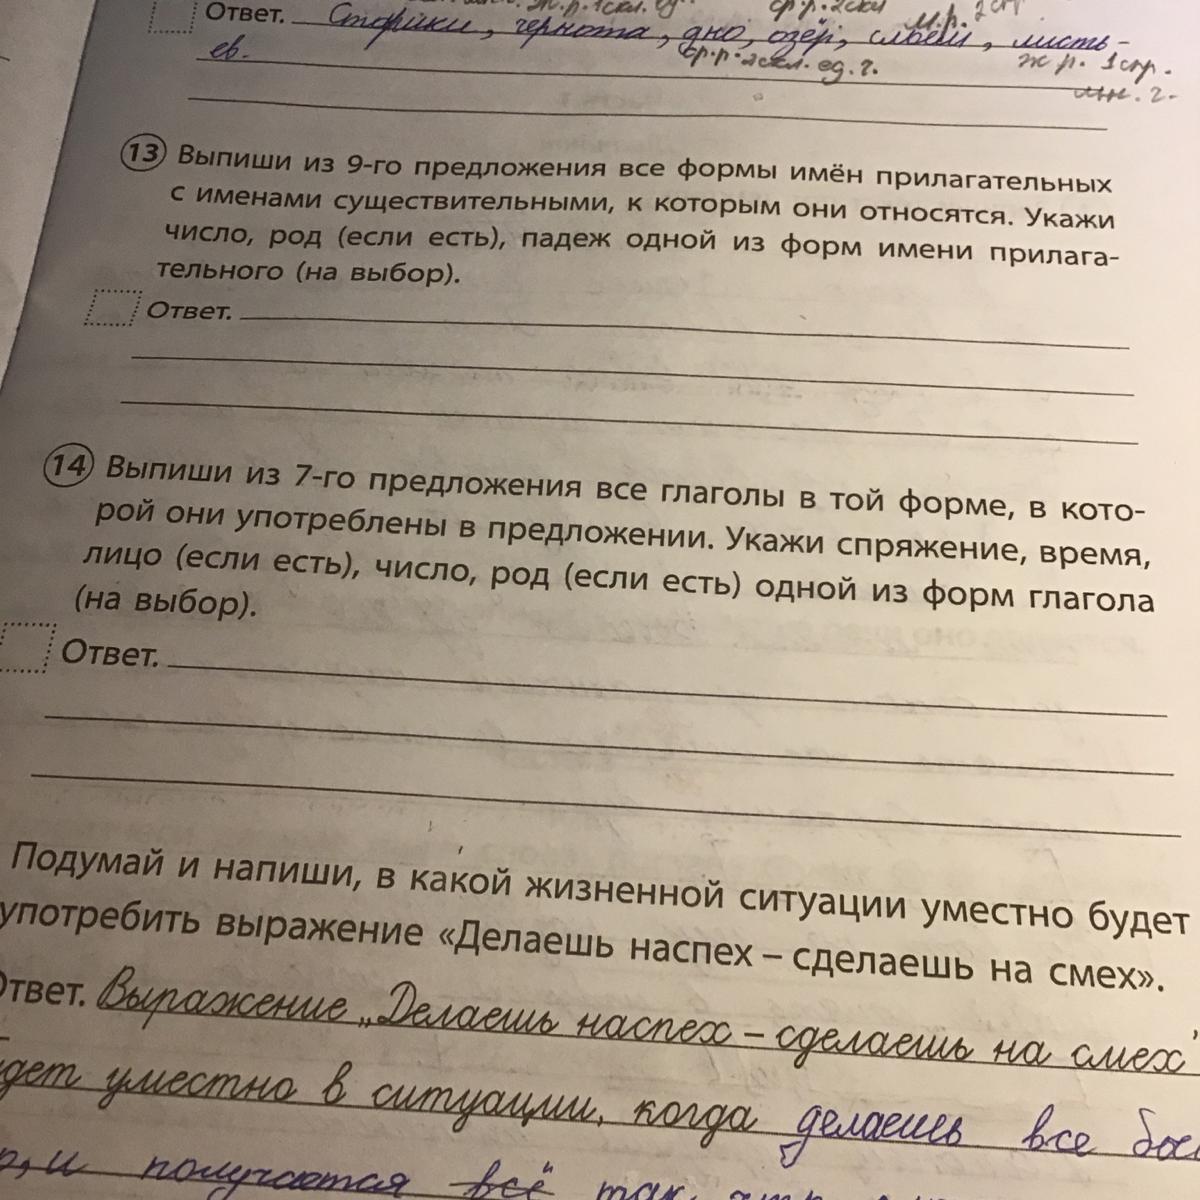 ж.р. 1скл. ед. ср.р. 2скл м.р.
Ответ. Старики, чернота, дно, озёр, слоем, листь-
ев. ср.р. 2скл. ед. ч. ж р.
мн. ч.
13 Выпиши из 9-го предложения все формы имён прилагательных
с именами существительными, к которым они относятся. Укажи
число, род (если есть), падеж одной из форм имени прилага-
тельного (на выбор).
Ответ.
14 Выпиши из 7-го предложения все глаголы в той форме, в кото-
рой они употреблены в предложении. Укажи спряжение, время,
лицо (если есть), число, род (если есть) одной из форм глагола
(на выбор).
Ответ.
Подумай и напиши, в какой жизненной ситуации уместно будет
употребить выражение «Делаешь наспех – сделаешь на смех».
Ответ. Выражение „Делаешь наспех – сделаешь на смех"
дет уместно в ситуации, когда делаешь все
и получается всё так,